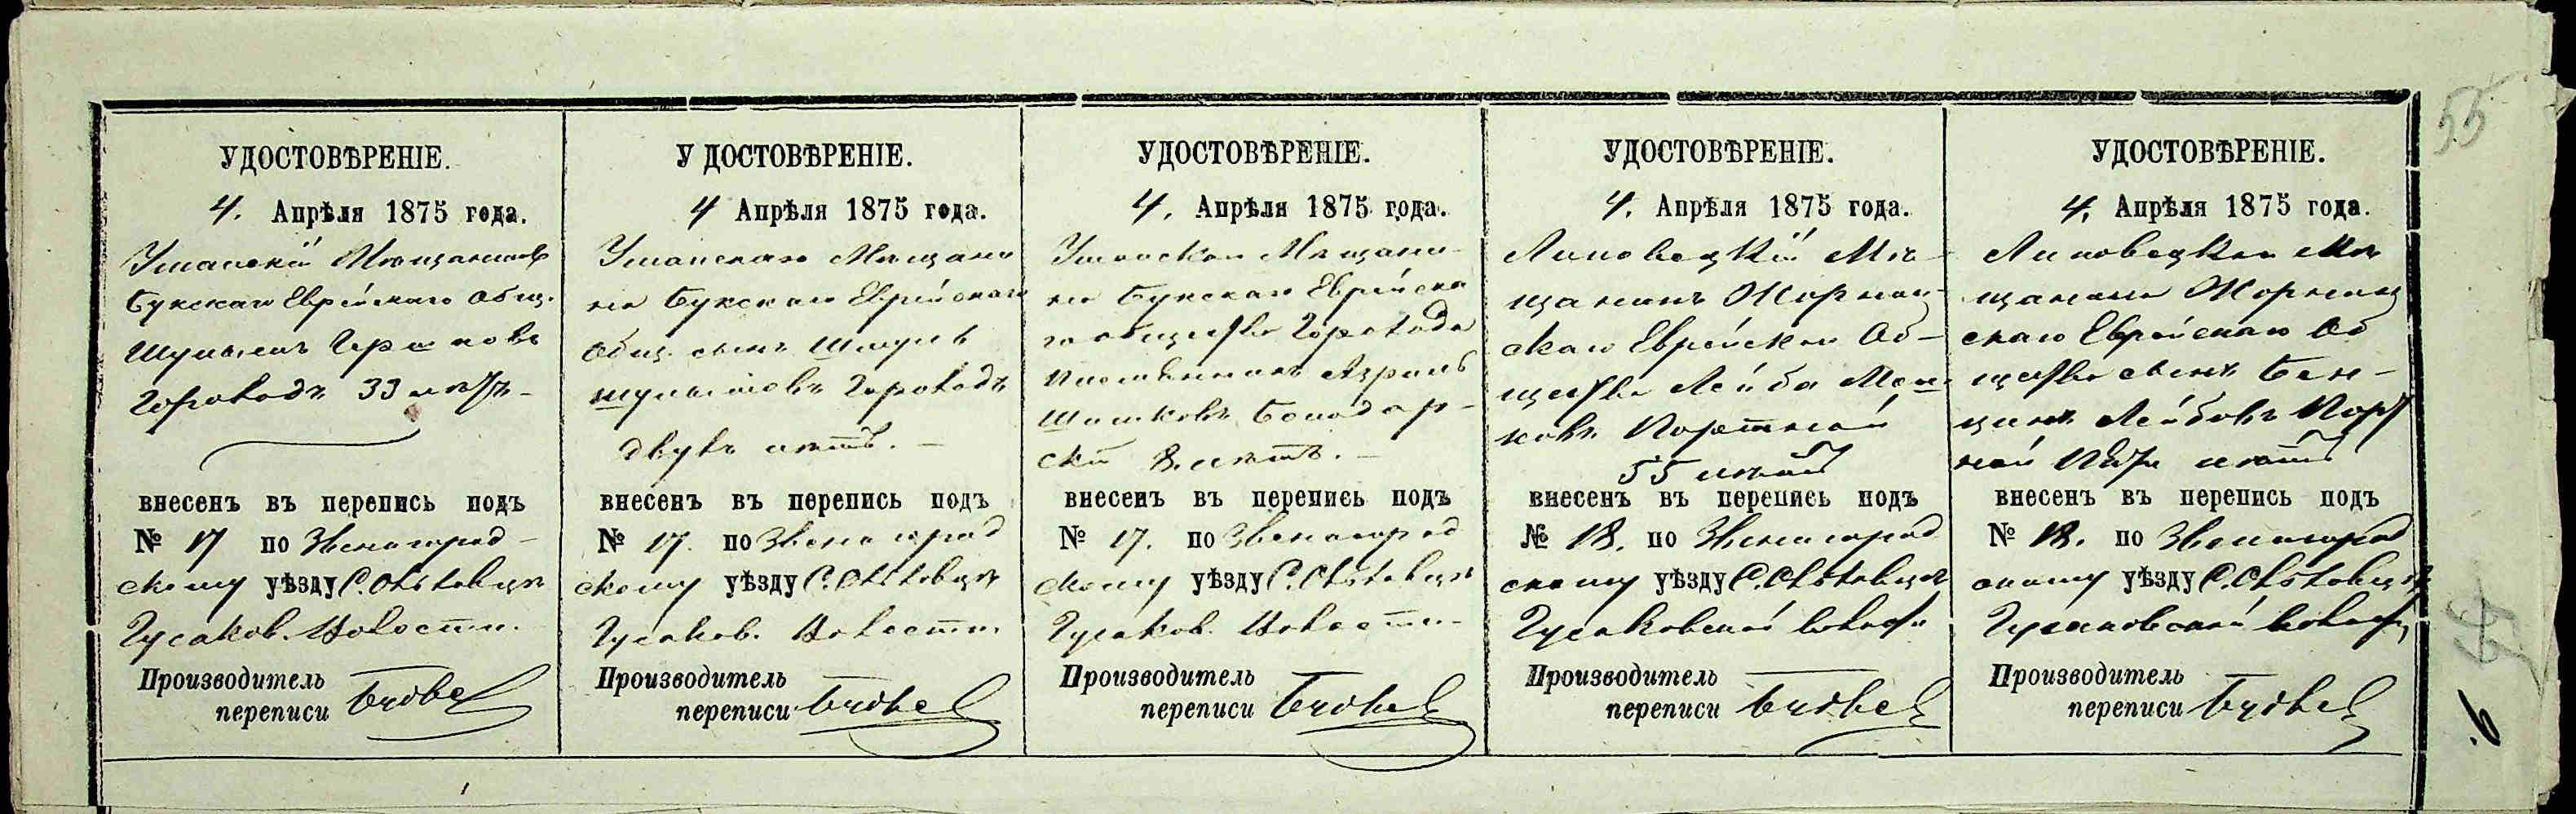 УДОСТОВѢРЕНІЕ.
4. Апрѣля 1875 года.
Уманскій Мѣщанинъ
Букскаго Еврейскаго Общ.
Шулимъ Гершковъ
Гороводъ 33 лѣтъ
внесенъ въ перепись подъ
№ 17 по Звенигород-
скому уѣзду С.
Гусаков. Волости.
Производитель
переписи
УДОСТОВѢРЕНІЕ.
4 Апрѣля 1875 года.
Уманскаго Мѣщани
на Букскаго Еврейскаго
Общ. сынъ Шмуль
Шулимовъ Гороводъ
двухъ лѣтъ. —
внесенъ въ перепись подъ
№ 17. по Звенигород
скому уѣзду С.
Гусаков. Волости.
Производитель
переписи
УДОСТОВѢРЕНІЕ.
4. Апрѣля 1875 года.
Уманскаго Мѣщани-
на Букскаго Еврейска
го общества Горовода
племянникъ Азриль
ски 8. лѣтъ. —
внесенъ въ перепись подъ
№ 17. по Звенигород
скому уѣзду С.
Гусаков. Волости
Производитель
переписи
УДОСТОВѢРЕНІЕ.
4. Апрѣля 1875 года.
Липовецкій Мѣ-
щанинъ Жорнищ-
скаго Еврейскаго Об-
щества Лейба Мош-
ковъ Портной
55 лѣтъ
внесенъ въ перепись подъ
№ 18. по Звенигород
скому уѣзду С.
Гусаковской волости
Производитель
переписи
УДОСТОВѢРЕНІЕ.
4. Апрѣля 1875 года.
Липовецкаго Мѣ
щанина Жорнищ
скаго Еврейскаго Об
щества сынъ Бен-
ціонъ Лейбовъ Порт
ной пяти лѣтъ
внесенъ въ перепись подъ
№ 18. по Звенигород
скому уѣзду С.
Гусаковской волости
Производитель
переписи
55